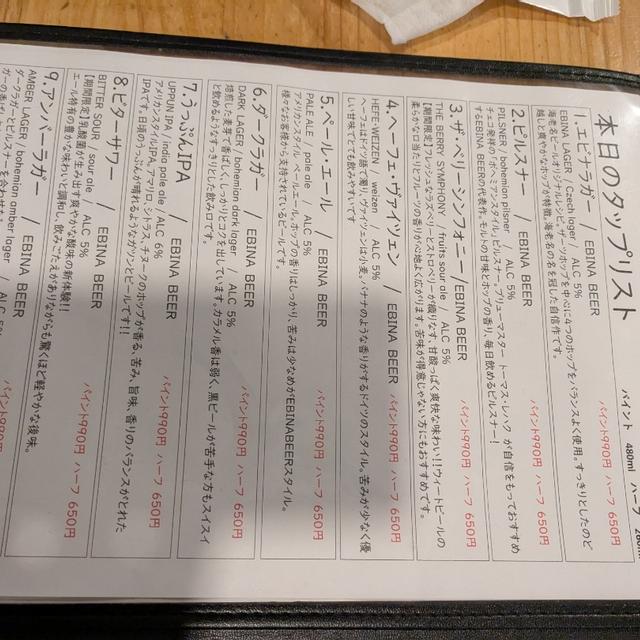 本日のタップリスト
パイント 480ml ハーフ 280ml
1.エビナラガー / EBINA BEER
EBINA LAGER / Czech lager / ALC 5% パイント990円 ハーフ 650円
海老名ビールオリジナルレシピ。ザーツホップを中心に4つのホップをバランスよく使用。すっきりとしたのど
越しと爽やかなホップが特徴。海老名の名を冠した自信作です。
2.ピルスナー / EBINA BEER
PILSNER / bohemian pilsner / ALC 5% パイント990円 ハーフ 650円
チェコ発祥の「ボヘミアンスタイル」ピルスナー。ブリューマスター トーマス・レハク が自信をもっておすすめ
するEBINA BEERの代表作。モルトの甘味とホップの香り、毎日飲めるピルスナー!
3.ザ・ベリーシンフォニー/EBINA BEER
THE BERRY SYMPHONY / fruits sour ale / ALC 5% パイント990円 ハーフ 650円
【期間限定】フレッシュなラズベリーとストロベリーが織りなす、甘酸っぱく爽快な味わい!!ウィートビールの
柔らかな口当たりとフルーツの香りが心地よく広がります。苦味が得意じゃない方にもおすすめです。
4.ヘーフェ・ヴァイツェン / EBINA BEER
HEFE-WEIZEN / weizen / ALC 5% パイント990円 ハーフ 650円
ヘーフェはドイツ語で濁り、ヴァイツェンは小麦。バナナのような香りがするドイツのスタイル。苦みが少なく優
しい甘味でとても飲みやすいです。
5.ペール・エール / EBINA BEER
PALE ALE / pale ale / ALC 5% パイント990円 ハーフ 650円
アメリカンスタイル・ペールエール。ホップの香りはしっかり、苦みは少なめがEBINABEERスタイル。
様々なお客様から支持されているビールです。
6.ダークラガー / EBINA BEER
DARK LAGER / bohemian dark lager / ALC 5% パイント990円 ハーフ 650円
焙煎した麦芽で香ばしく、しっかりとコクを出しています。カラメル香は弱く、黒ビールが苦手な方もスイスイ
と飲めるようなすっきりとした飲み口です。
7.うっぷんIPA / EBINA BEER
UPPUN IPA / india pale ale / ALC 6% パイント990円 ハーフ 650円
アメリカンスタイルIPA。アマリロ、シトラス、チヌークのホップが香る、苦み、旨味、香りのバランスがとれた
IPAです。日頃のうっぷんが晴れるようなガツンとビールです!!
8.ビターサワー / EBINA BEER
BITTER SOUR / sour ale / ALC 5% パイント990円 ハーフ 650円
【期間限定】乳酸菌が生み出す爽やかな酸味の新体験!!
エール特有の豊かな味わいと調和し、飲みごたえがありながらも驚くほど軽やかな後味。
9.アンバーラガー / EBINA BEER
AMBER LAGER / bohemian amber lager / ALC 5%